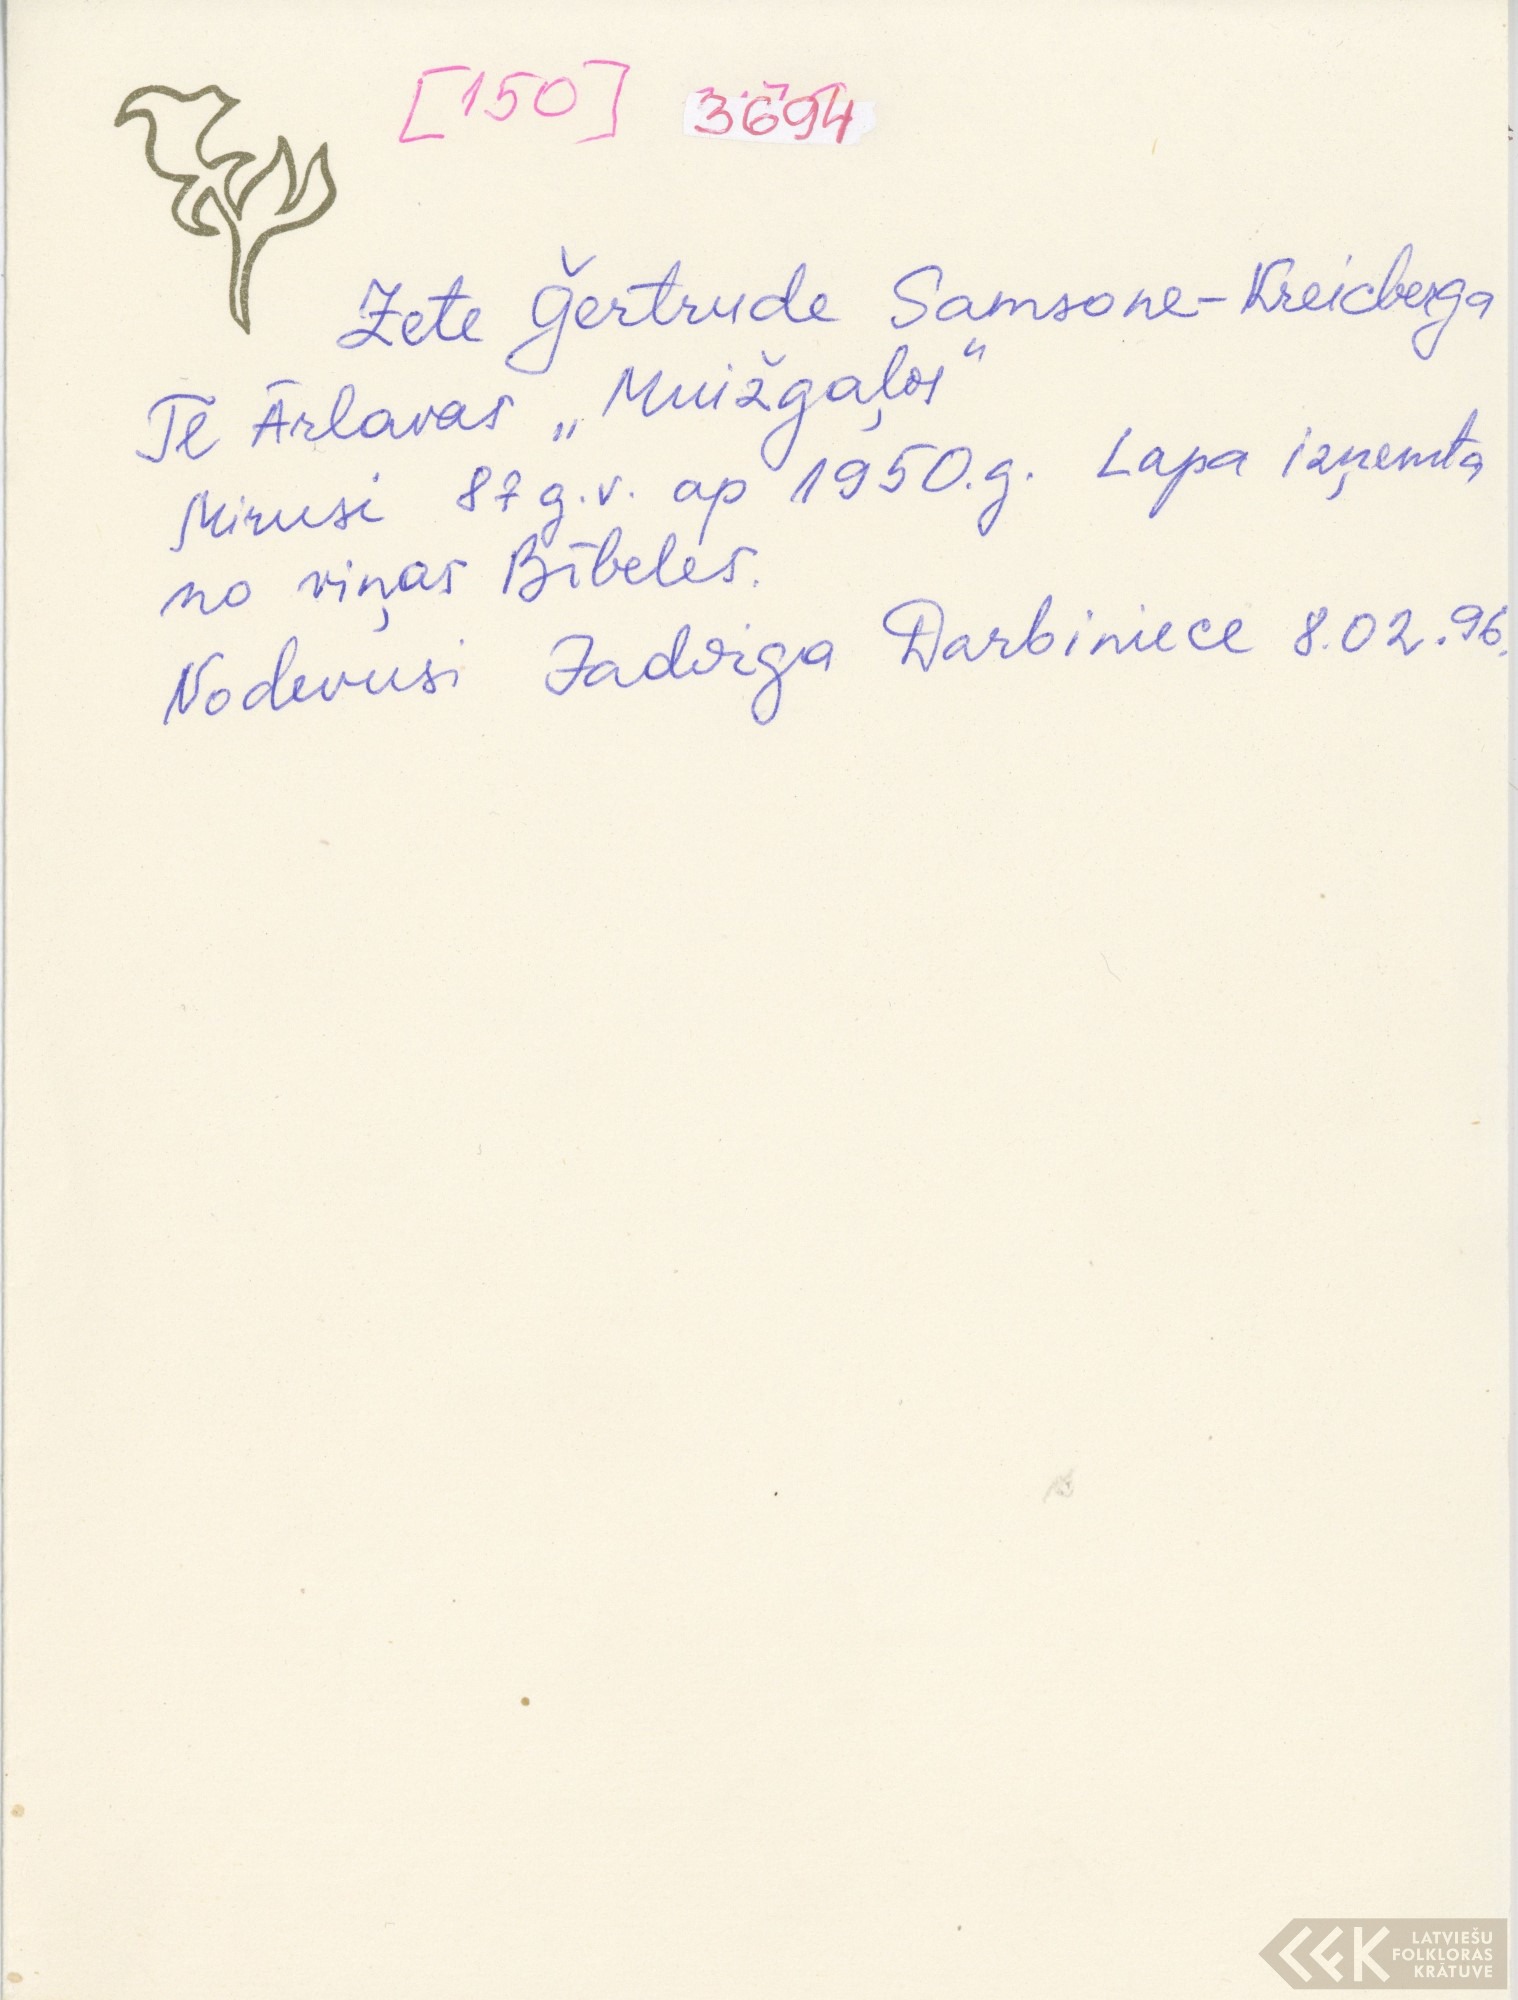 [150] 3694
Zete Ģertrude Samsone-Kreicberga
Tē Ārlavas „Muižgaļos"
Mirusi 87 g.v. ap 1950.g. Lapa izņemta
no viņas Bībeles.
Nodevusi Jadviga Darbiniece 8.02.96.
LATVIEŠU
FOLKLORAS
KRĀTUVE